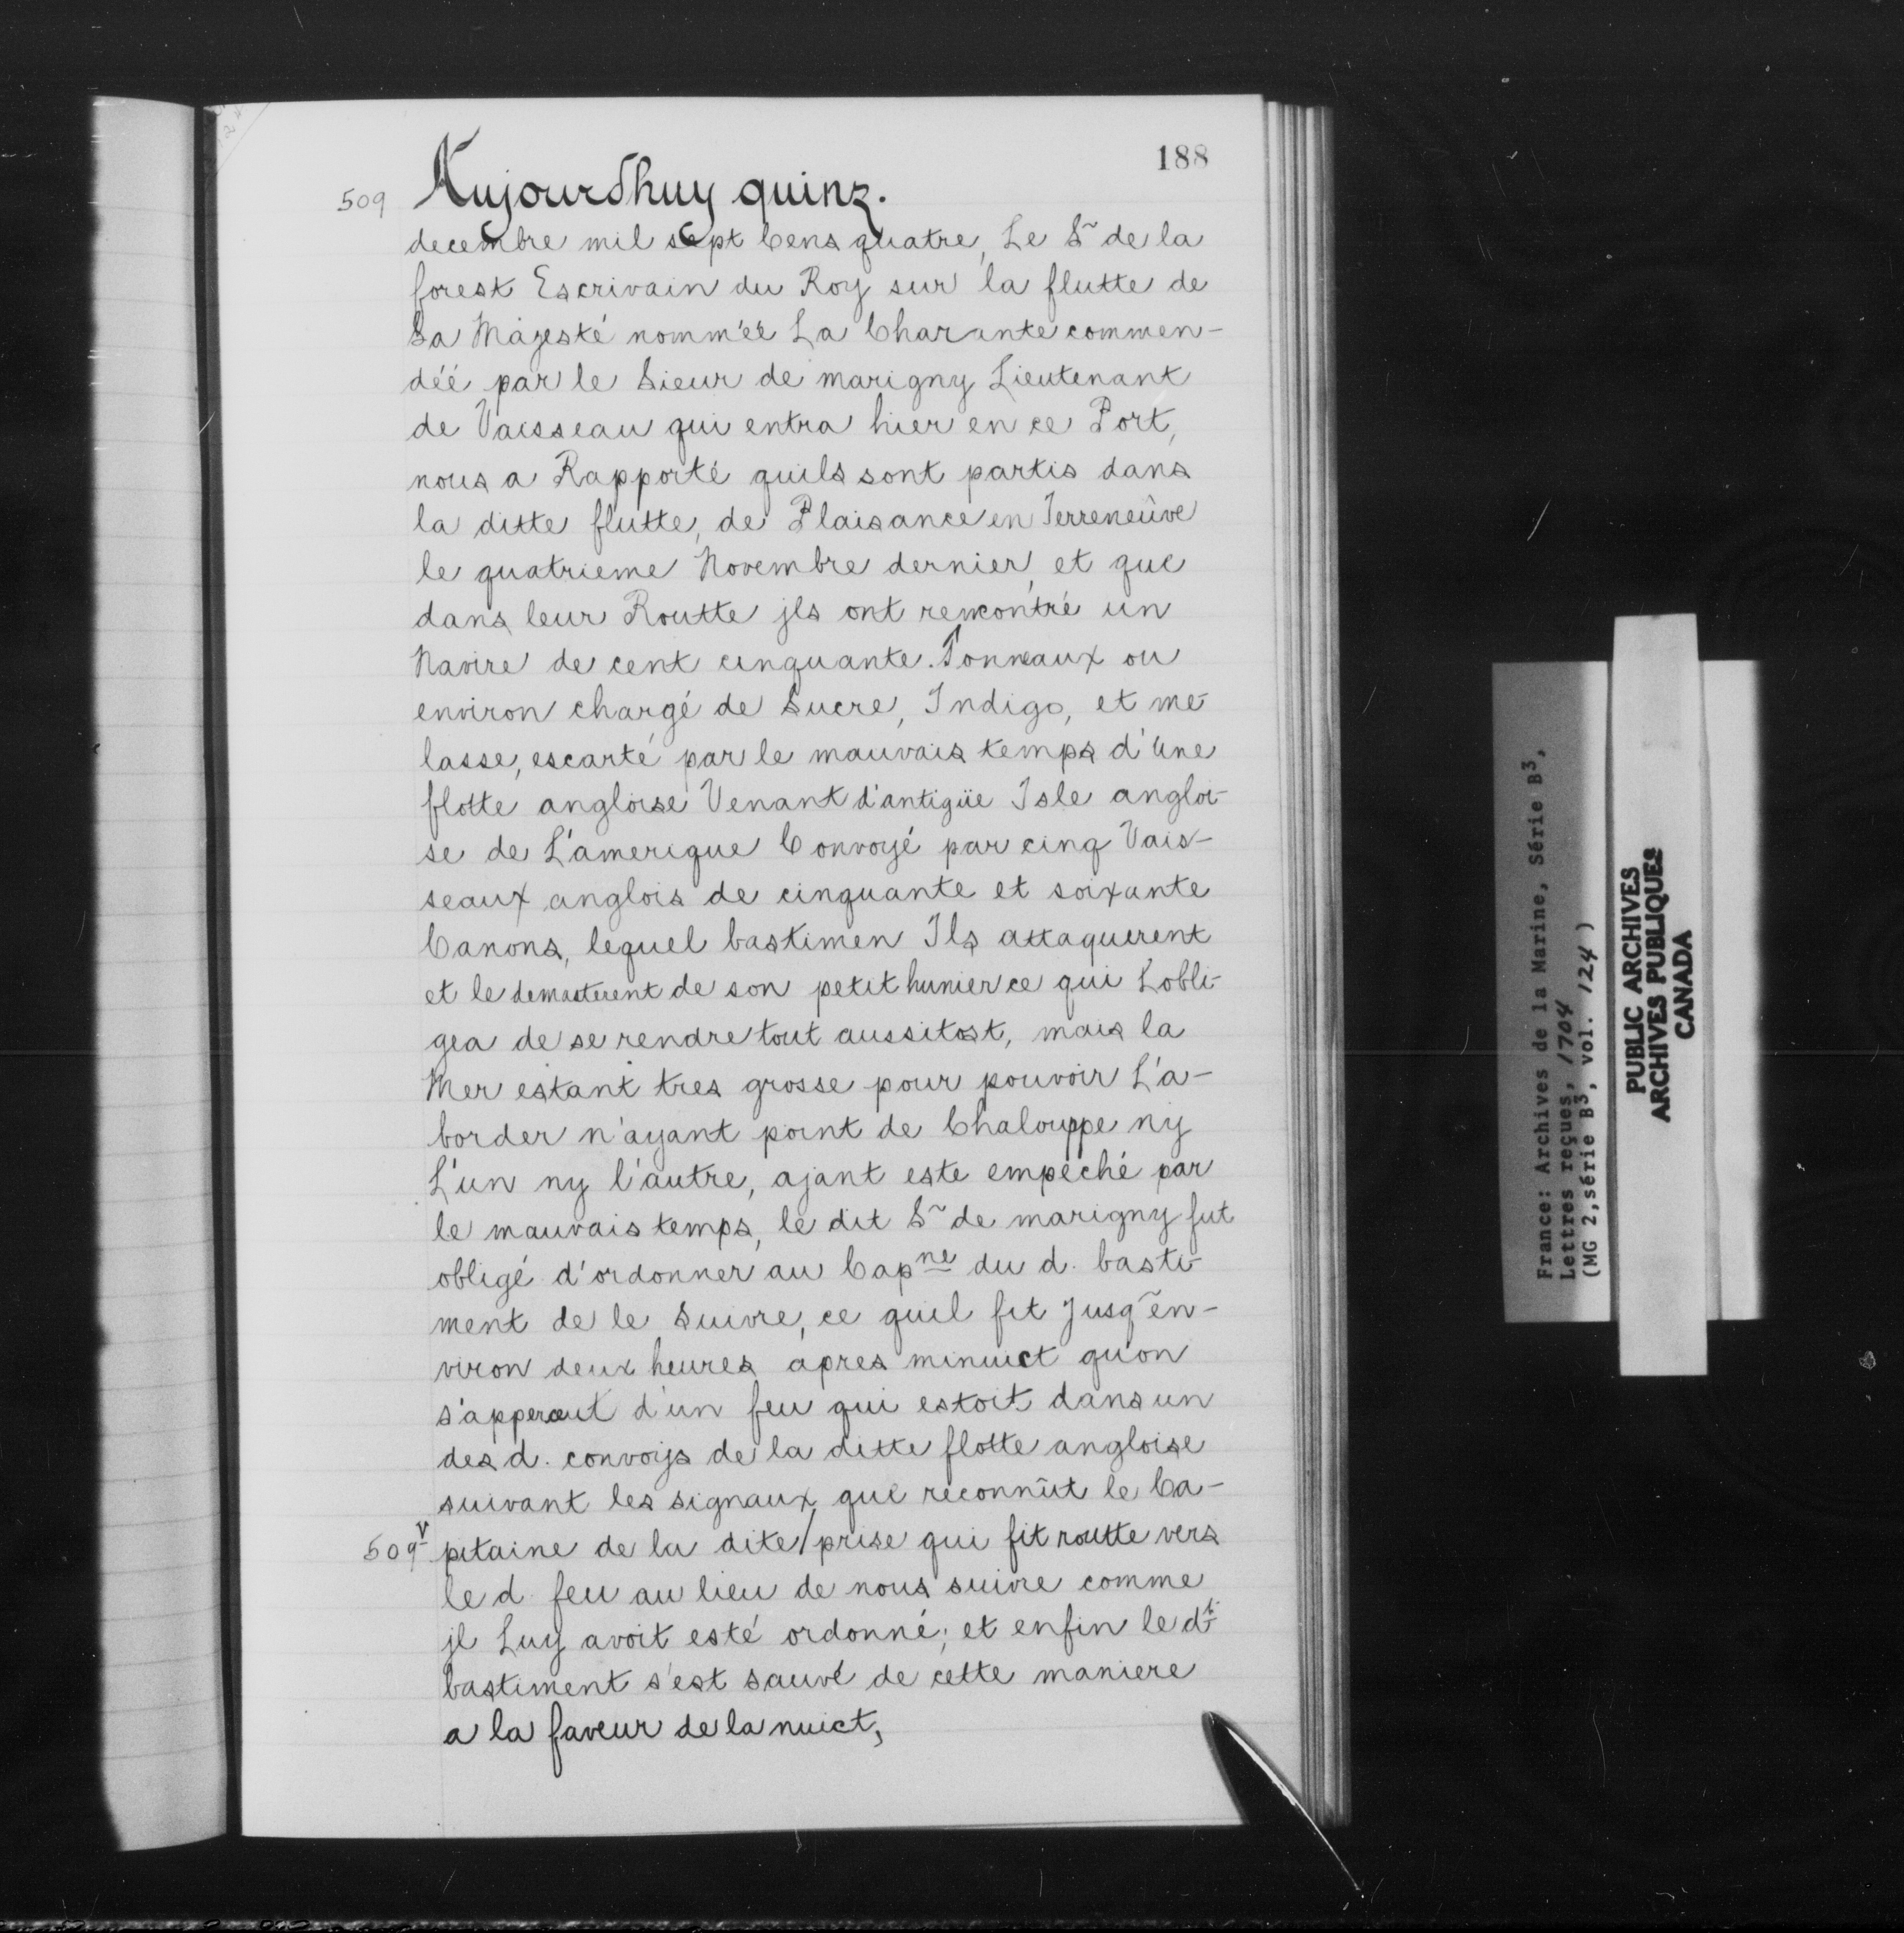 188
509 Aujourdhuy quinz.
decembre mil sept Cens quatre, Le Sr de la
forest Escrivain du Roy sur la flutte de
Sa Majesté nommée La Charante commen-
déé par le Sieur de marigny Lieutenant
de Vaisseau qui entra hier en ce Port,
nous a Rapporté quils sont partis dans
la ditte flutte, de Plaisance en Terreneûve
le quatrieme Novembre dernier, et que
dans leur Routte jls ont rencontré un
Navire de cent cinquante. Tonneaux ou
environ chargé de Sucre, Indigo, et me-
lasse, escarté par le mauvais temps d'une
flotte angloise Venant d'antigüe Isle angloi-
se de L'amerique Convoyé par cinq Vais-
seaux anglois de cinquante et soixante
Canons, lequel bastimen Ils attaquerent
et le demasterent de son petit hunier ce qui Lobli-
gea de se rendre tout aussitost, mais la
Mer estant tres grosse pour pouvoir L'a-
border n'ayant point de Chalouppe ny
L'un ny l'autre, ajant este empéché par
le mauvais temps, le dit Sr de marigny fut
obligé d'ordonner au Capne du d. basti-
ment de le Suivre, ce quil fit Jusq~ en-
viron deux heures apres minuict qu'on
s'apperceut d'un feu qui estoit dans un
des d. convoys de la ditte flotte angloise
suivant les signaux que reconnût le Ca-
509v pitaine de la dite/prise qui fit routte vers
le d. feu au lieu de nous suivre comme
jl Luy avoit esté ordonné; et enfin le dt
bastiment s'est sauvé de cette maniere
a la faveur de la nuict,
France: Archives de la Marine, Série B3,
Lettres reçues, 1704
(MG 2, série B3, vol. 124)
PUBLIC ARCHIVES
ARCHIVES PUBLIQUES
CANADA